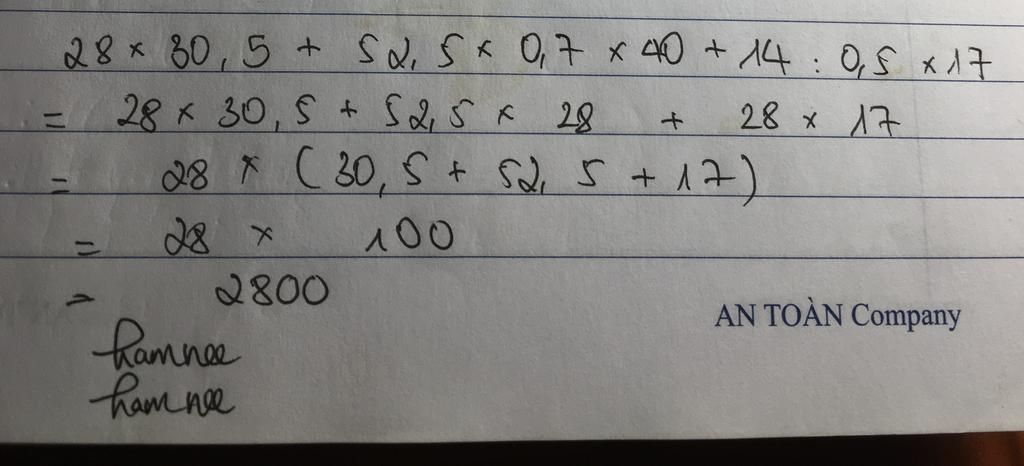 28 × 30,5 + 52,5 × 0,7 × 40 + 14 : 0,5 × 17
= 28 × 30,5 + 52,5 × 28 + 28 × 17
= 28 × (30,5 + 52,5 + 17)
= 28 × 100
= 2800
AN TOÀN Company
hamnee
hamnee